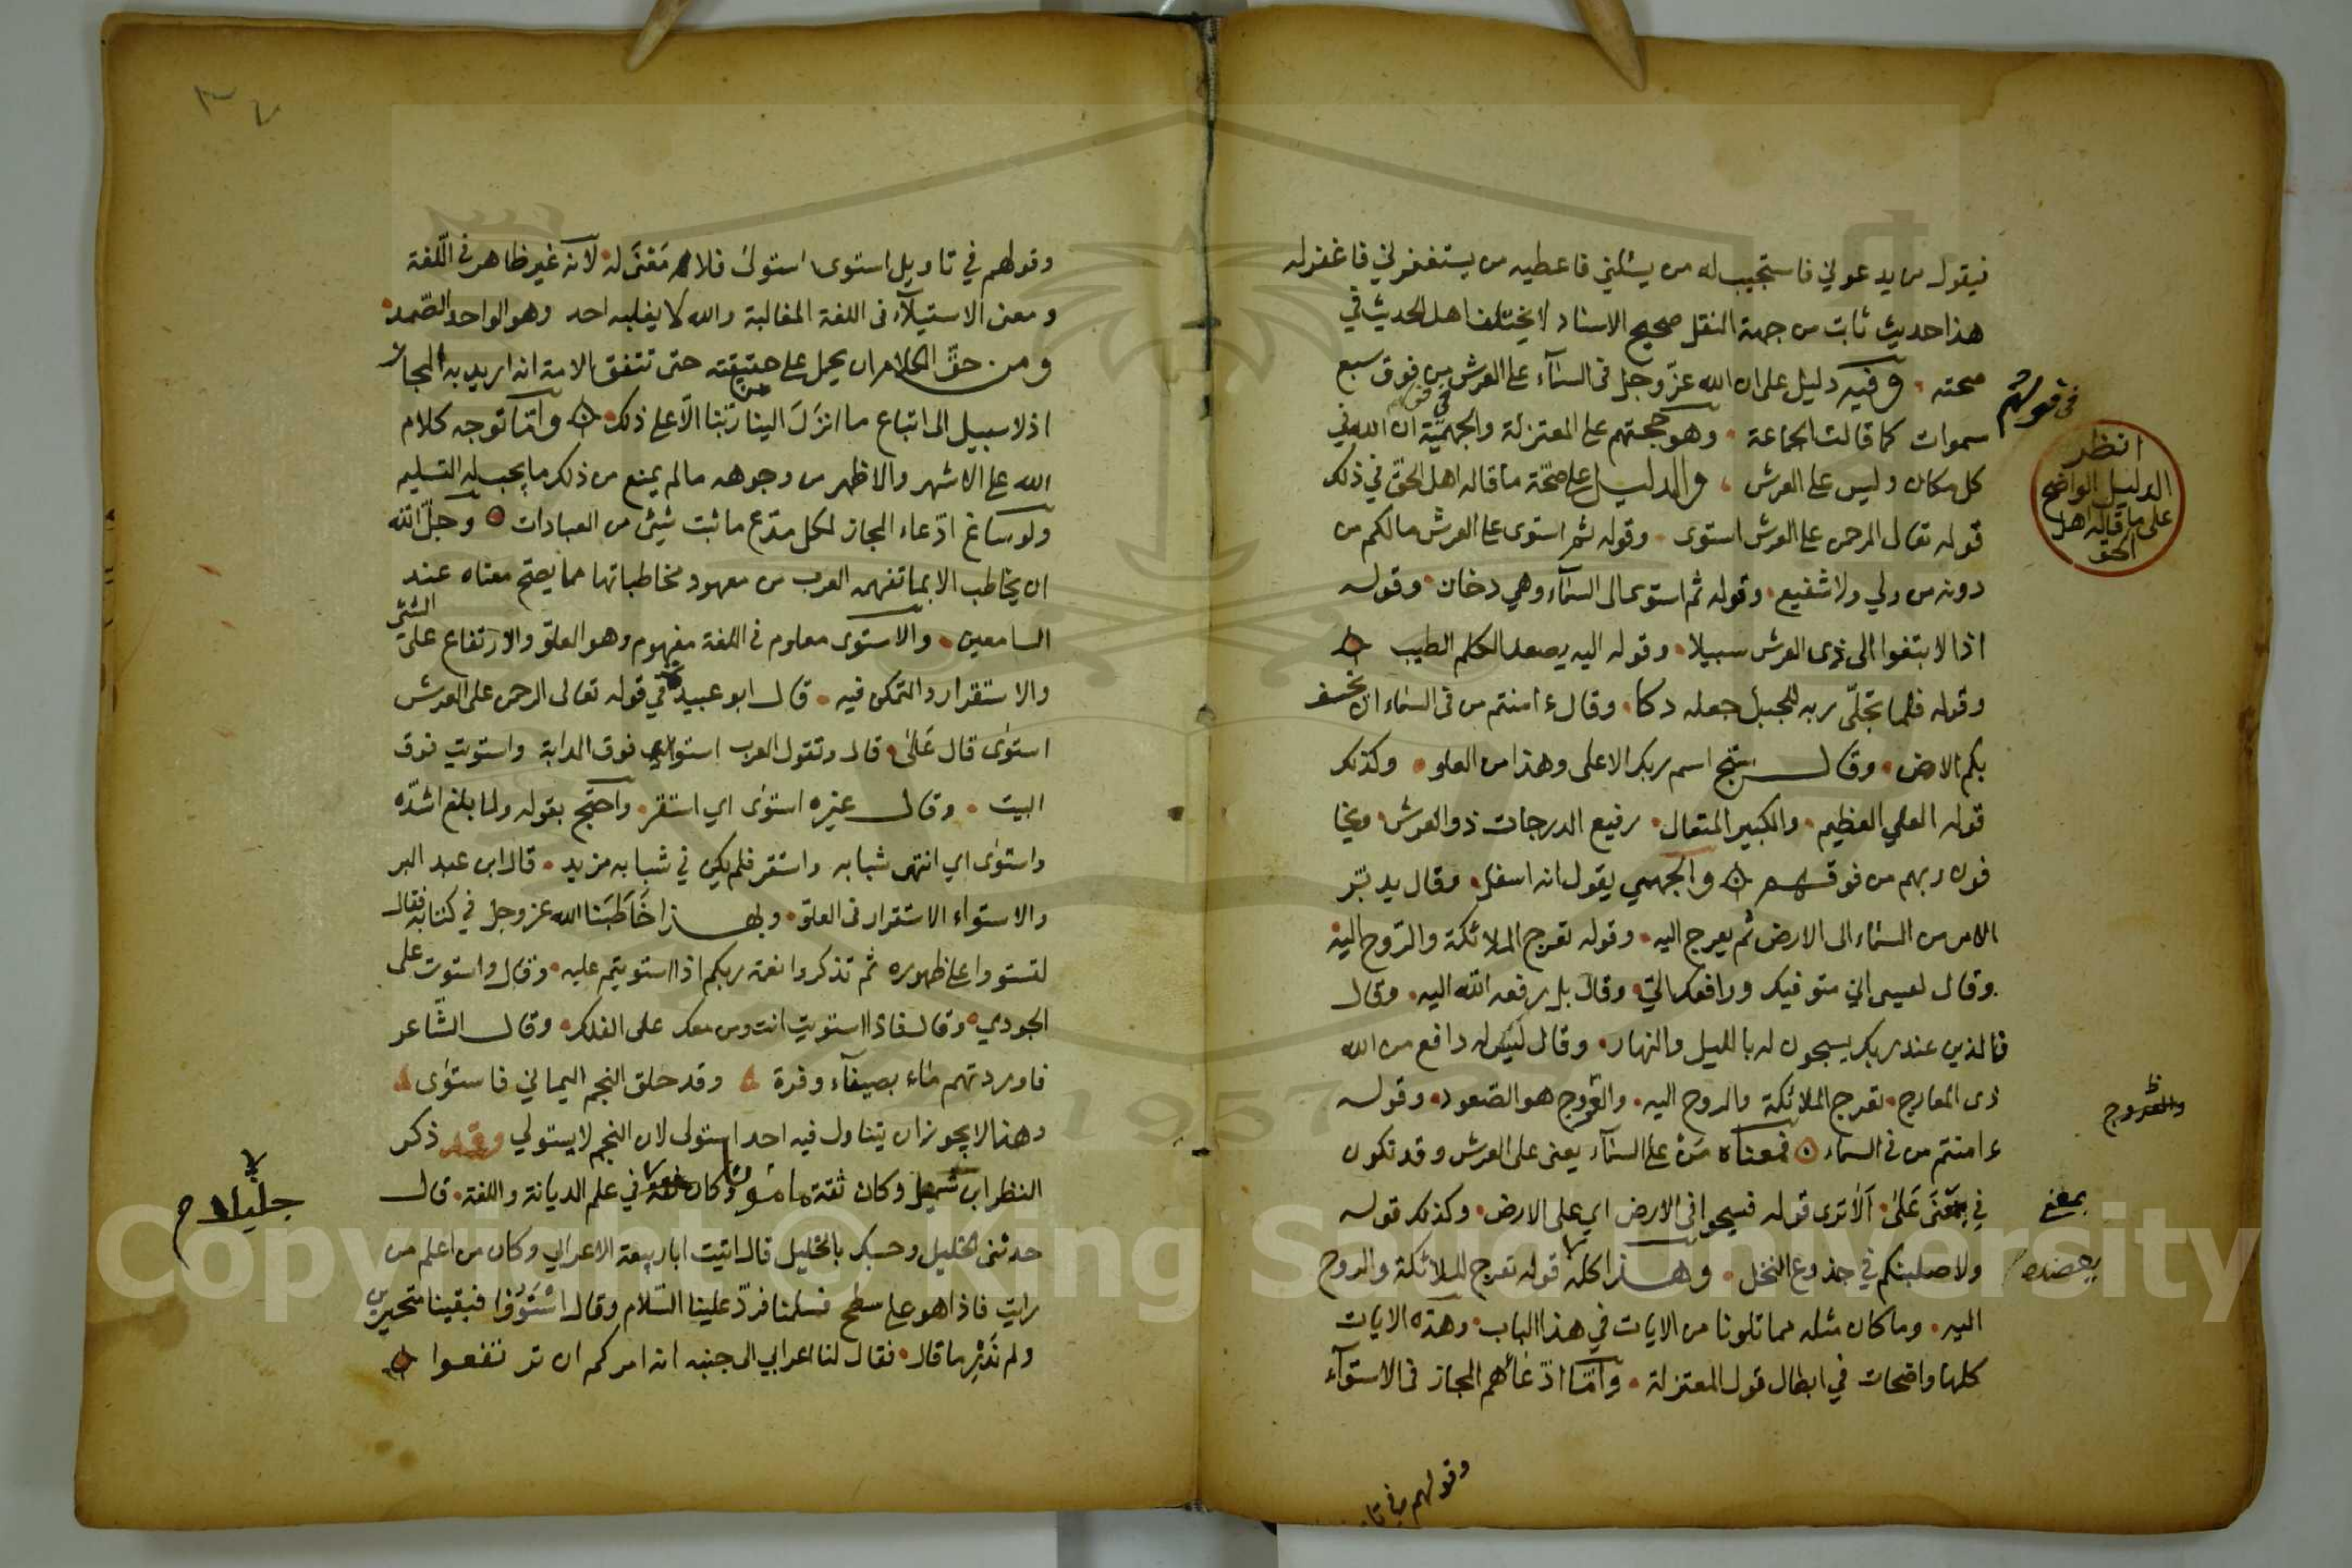 فيقول من يدعوني فاستجيب له من يسئلني فاعطيه من يستغفرني فاغفرله
هذا حديث ثابت من جهة النقل صحيح الاسناد لا يختلف اهل الحديث في
صحته وفيه دليل على ان الله عزّ وجل في السمآء على العرش من فوق سبع
سموات كما قالت الجماعة وهو حجتهم على المعتزلة والجهميّة ان الله في
في قولهم
كل مكان وليس على العرش والدليل على صحّة ما قاله اهل الحقّ في ذلك
انظر
الدليل الواضح
على ما قاله اهل
الحق
قوله تعالى الرحمن على العرش استوى وقوله ثم استوى على العرش مالكم من
دونه من ولي ولا شفيع وقوله ثم استوى الى السمآء وهي دخان وقوله
اذا لابتغوا الى ذي العرش سبيلا وقوله اليه يصعد الكلم الطيب
وقوله فلما تجلّى ربه للجبل جعله دكا وقال ءامنتم من في السماء ان يخسف
بكم الارض وقال سبّح اسم ربك الاعلى وهذا من العلو وكذلك
قوله العلي العظيم والكبير المتعال رفيع الدرجات ذو العرش ويخا
فون ربهم من فوقهم والجهمي يقول انه اسفل وقال يدبّر
الامر من السماء الى الارض ثم يعرج اليه وقوله تعرج الملائكة والرّوح اليه
وقال لعيسى اني متوفيك ورافعك اليّ وقال بل رفعه الله اليه وقال
فالذين عند ربك يسبحون له بالليل والنهار وقال ليس له دافع من الله
ذي المعارج تعرج الملائكة والروح اليه والعروج هو الصّعود وقوله
والعروج
ءامنتم من في السماء فمعناه مَنْ على السمآء يعني على العرش وقد تكون
في بمعنَى عَلَى اَلَا ترى قوله فسيحوا في الارض اي على الارض وكذلك قوله
بمعنى
ولاصلبنكم في جذوع النخل وهذا كله قوله تعرج الملائكة والروح
يعضده
اليه وما كان مثله مما تلونا من الايات في هذا الباب وهذه الايات
كلها واضحات في ابطال قول المعتزلة وامّا ادّعائهم المجاز في الاستوآء
وقولهم في تا
وقولهم في تاويل استوى استولى فلا مَعْنَى له لانه غير ظاهر في اللّغة
ومعنى الاستيلآء في اللغة المغالبة والله لا يغلبه احد وهو الواحد الصّمد
ومن حقّ الكلام ان يحمل على حقيقته حتى تتفق الامة انه اريد به المجاز
اذ لا سبيل الى اتباع ما انزَلَ الينا من ربّنا الّا على ذلك وانّما توجه كلام
الله على الاشهر والاظهر من وجوهه مالم يمنع من ذلك ما يجب له التسليم
ولو ساغ ادّعاء المجاز لكل مدّع ما ثبت شيئ من العبادات وجلّ الله
ان يخاطب الا بما تفهمه العرب من معهود مخاطباتها مما يصحّ معناه عند
السامعين والاستوى معلوم في اللغة مفهوم وهو العلوّ والارتفاع على الشئ
والاستقرار والتمكن فيه قال ابو عبيدة في قوله تعالى الرحمن على العرش
استوى قال عَلَى قال وتقول العرب استويت فوق الدابة واستويت فوق
البيت وقال غيره استوى اي استقر واحتج بقوله ولما بلغ اشدّه
واستوى اي انتهى شبابه واستقر فلم يكن في شبابه مزيد قال ابن عبد البر
والاستواء الاستقرار في العلوّ وبهذا خَاطَبَنا الله عز وجل في كتابه فقال
لتستووا على ظهوره ثم تذكروا نعمة ربكم اذا استويتم عليه وقال واستوت على
الجودي وقال فاذا استويت انت ومن معك على الفلك وقال الشّاعر
فاوردتهم مآء بصيفآء وقرة وقد حلق النجم اليماني فاستوى
وهذا لا يجوز ان يتناول فيه احد استولى لان النجم لا يستولي وقد ذكر
النظر ابن شميل وكان ثقة مامونا وكان في علم الديانة واللغة قال
جليلا
حدثني الخليل وحسبك بالخليل قال اتيت ابا ربيعة الاعرابي وكان من اعلم من
رايت فاذا هو على سطح فسلمنا فردّ علينا السّلام وقال اسْتَوُوا فبقينا متحيرين
ولم نَدْرِ ما قال فقال لنا اعرابي الى جنبه انه امركم ان ترتفعوا